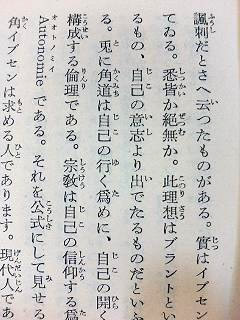 諷刺だとさへ云つたものがある。實はイブセン
てゐる。悉皆か絕無か。此理想はブラントとい
るもの、自己の意志より出でたるものだといふ
る。兎に角道は自己の行く爲めに、自己の開く
構成する倫理である。宗敎は自己の信仰する爲
Autonomie である。それを公式にして見せる
角イブセンは求める人であります。現代人であ